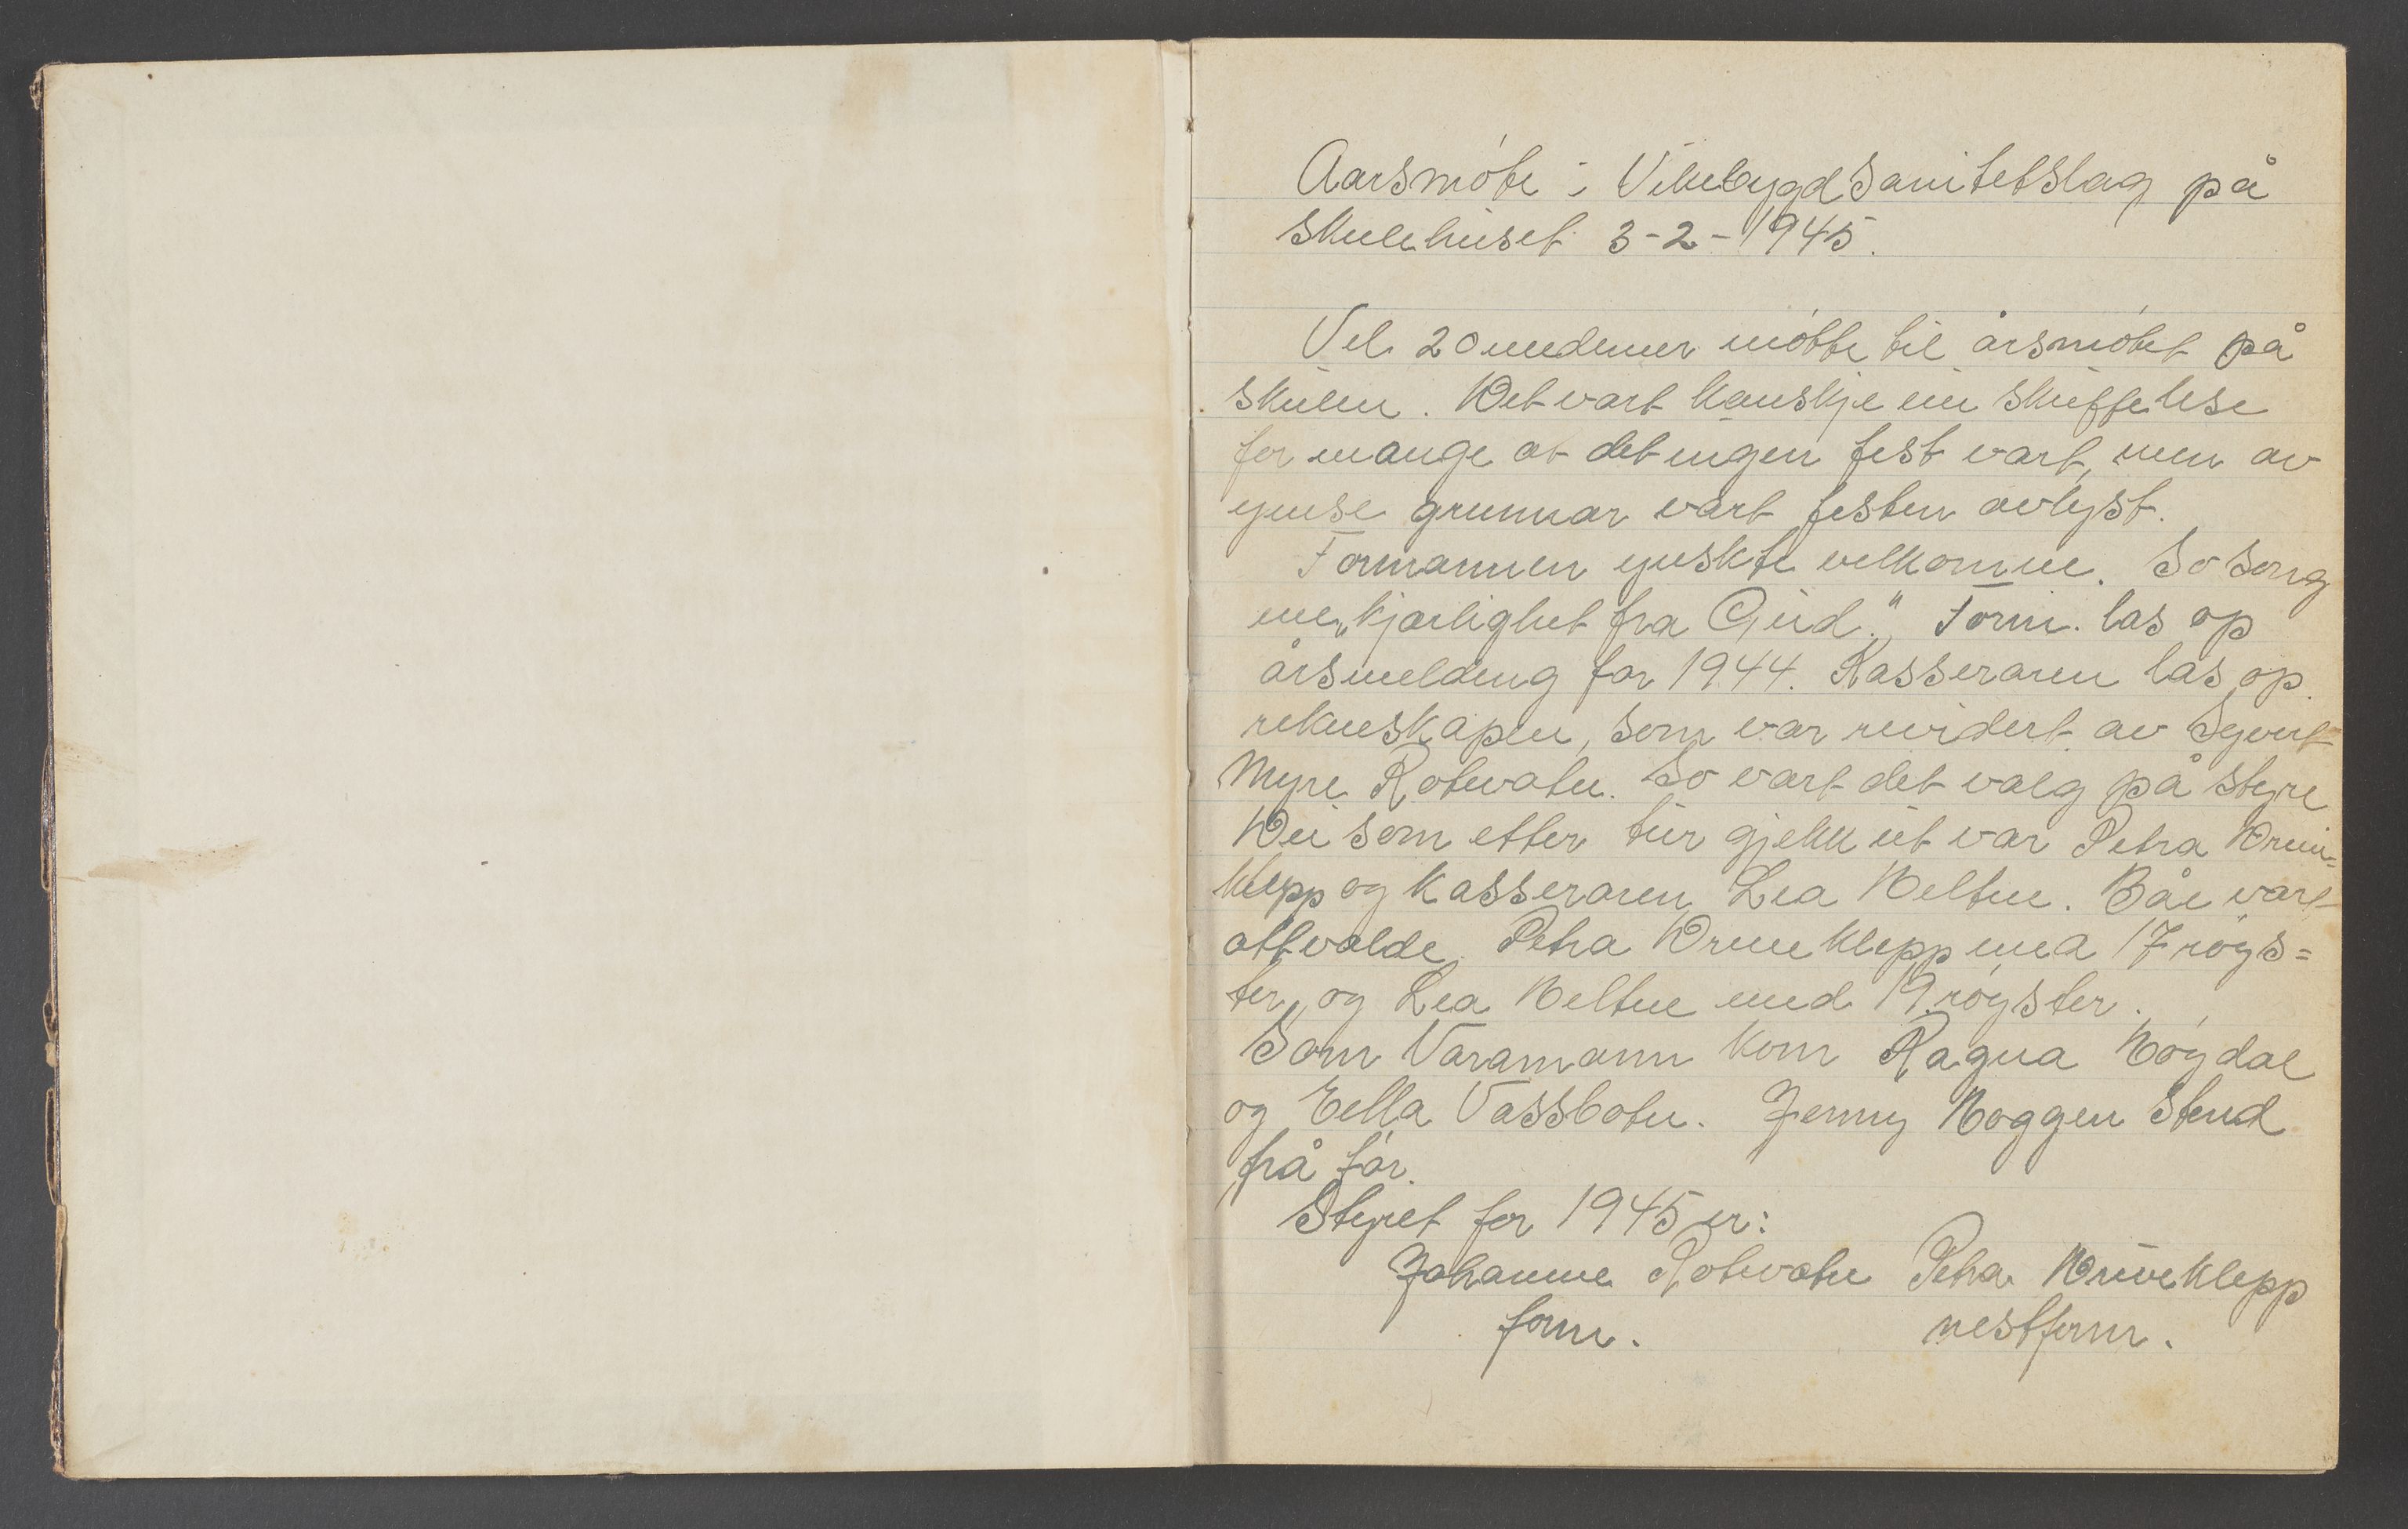 Aarsmóte i Vikebygd Sanitetslag på
Skulehuset 3-2-1945.
Vel 20 medlemer mótte til årsmótet på
Skulen. Det vart kanskje ein skuffelse
for mange at det ingen fest vart, men av
ymse grunnar vart festen avlyst.
Formannen ynskte velkomne. So song
me „Kjærlighet fra Gud." Form. las op
årsmelding for 1944. Kasseraren las op
rekneskapen, som var revidert av Syvert
Myre Rotevatn. So vart det valg på styre
Dei som etter tur gjekk ut var Petra Drive=
klepp og Kasseraren Lea Velten. Båe vart
attvalde. Petra Driveklepp med 17 róys=
ter, og Lea Velten med 19 róyster.
Som Varamann kom Ragna Hógdal
og Ella Vassbotn. Jenny Hoggen stend
frå fór.
Styret for 1945 er:
Johanne Rotevatn Petra Driveklepp
form. nestform.